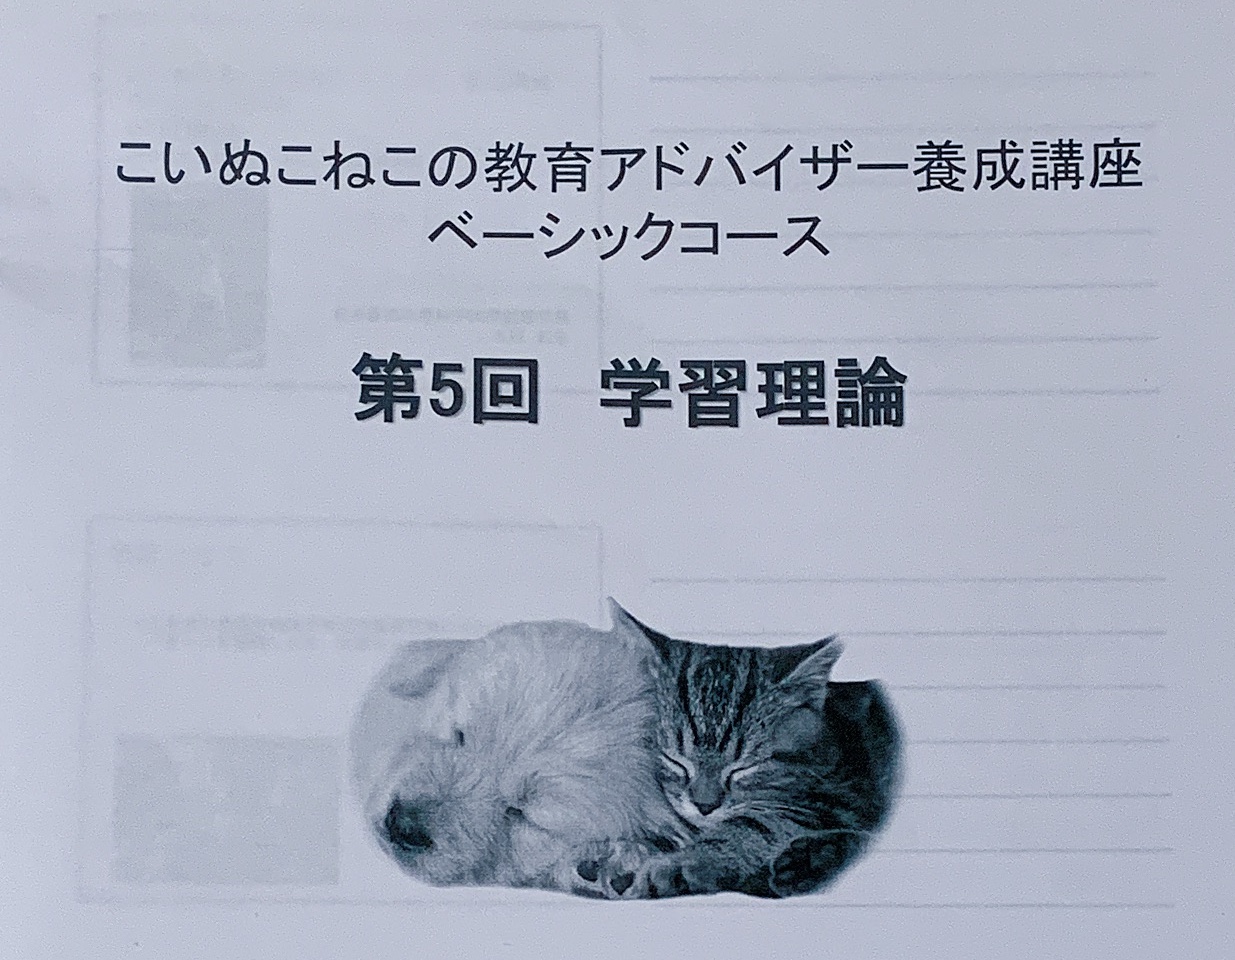 こいぬこねこの教育アドバイザー養成講座
ベーシックコース
第5回　学習理論